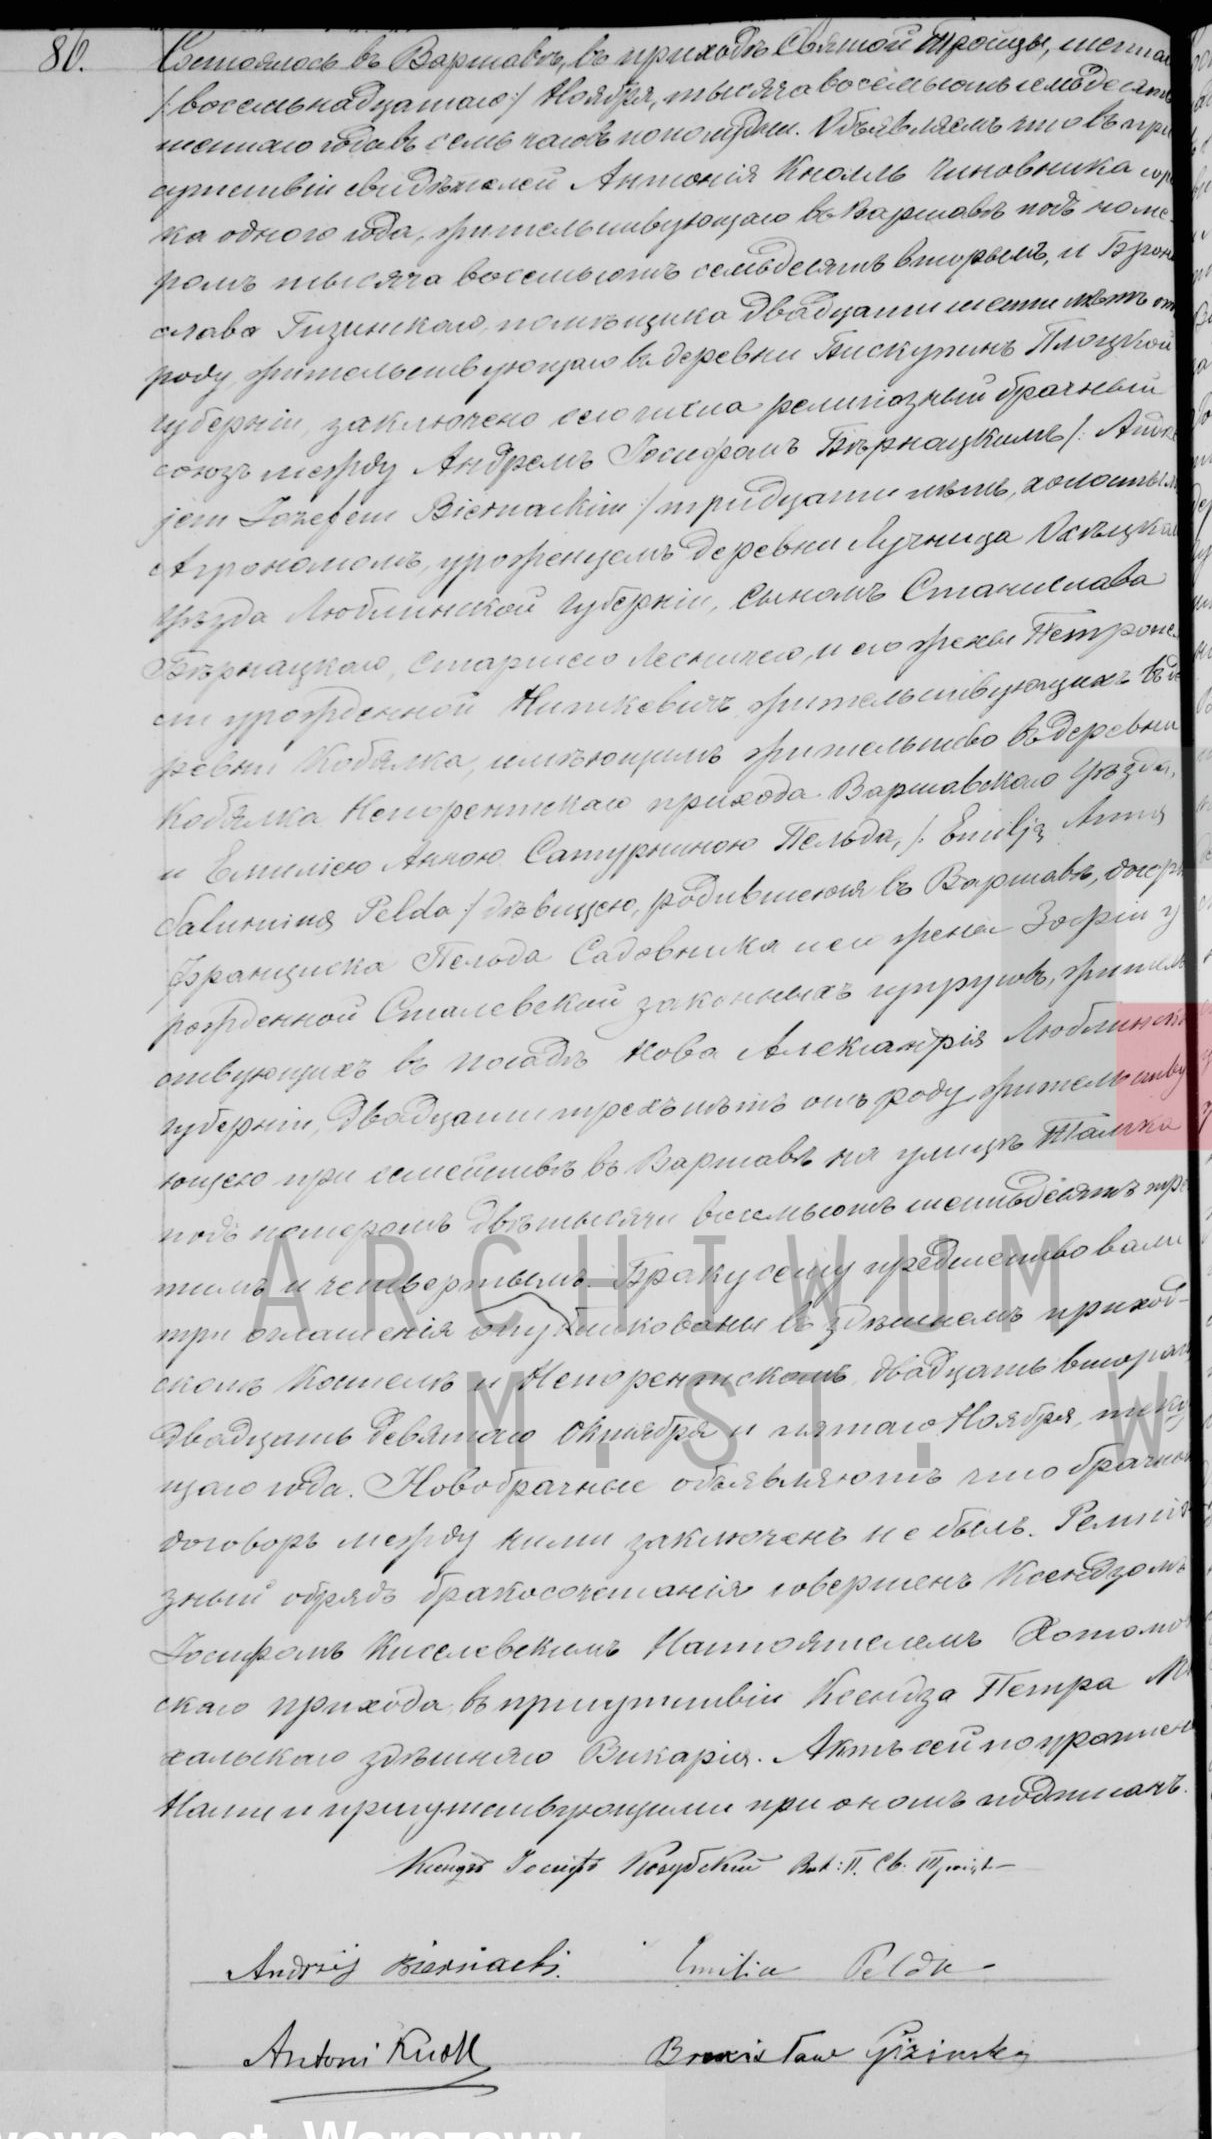 86.
Состоялось въ Варшавѣ, въ приходѣ Святой Троицы, шестаго
/:восемьнадцатаго:/ Ноября, тысяча восемьсотъ семьдесятъ
шестаго года въ семь часовъ пополудни. Объявляемъ что въ при
сутствіи свидѣтелей Антонія Кноллъ Чиновника соро
ка одного года, жительствующаго въ Варшавѣ подъ номе-
ромъ тысяча восемьсотъ семьдесятъ вторымъ, и Брони
слава Гизинскаго, помѣщика двадцати шести лѣтъ отъ
роду, жительствующаго въ деревни Бискупинъ Плоцкой
губерніи, заключено сего числа религіозный брачный
союзъ между Андреемъ Іосифомъ Бѣрнацкимъ /: Andrze
jem Józefem Biernackim :/ тридцати лѣтъ, холостымъ
Агрономомъ, урожденцемъ деревни Лучница
уѣзда Люблинской губерніи, сыномъ Станислава
Бѣрнацкаго, Старшего Лесничего, и его жены Петроне
ли урожденной Ниткевичъ, жительствующихъ въ де
ревни Кобялка, имѣющимъ жительство въ деревни
Кобялка Непорентскаго прихода Варшавскаго уѣзда,
и Емиліею Анною Сатурниною Пельда, /: Emilją Anną
Saturniną Pelda :/ дѣвицею, родившеюся въ Варшавѣ, дочерью
Франциска Пельда Садовника и его жены Зофіи у
рожденной Сталевской законныхъ супруговъ, житель
ствующихъ въ посадѣ Нова Александрія Люблинской
губерніи, двадцати трехъ лѣтъ отъ роду, жительству
ющею при семействѣ въ Варшавѣ на улицѣ Тамка
подъ номеромъ двѣ тысячи восемьсотъ шестьдесятъ тре
тимъ и четвертымъ. Браку сему предшествовали
три оглашенія опубликованы въ здѣшнемъ приход-
скомъ Костелѣ и Непорентскомъ, двадцать втораго
двадцать девятаго Октября и пятаго Ноября, теку
щаго года. Новобрачные объявляютъ что брачный
договоръ между ними заключенъ не былъ. Религіо
зный обрядъ бракосочетанія совершенъ Ксендзомъ
Іосифомъ Киселевскимъ Настоятелемъ Хотомов
скаго прихода, въ присутствіи Ксендза Петра Ми
хальскаго здѣшняго Викарія. Актъ сей по прочтеніи
Нами и присутствующими при ономъ подписанъ.
Ксендзъ Іосифъ П. Св. Троицы
Andrzej Biernacki. Emilia Pelda
Antoni Knoll Bronisław Gizinski
ARCHIWUM
M. ST. W
wowe m.st. Warszawy